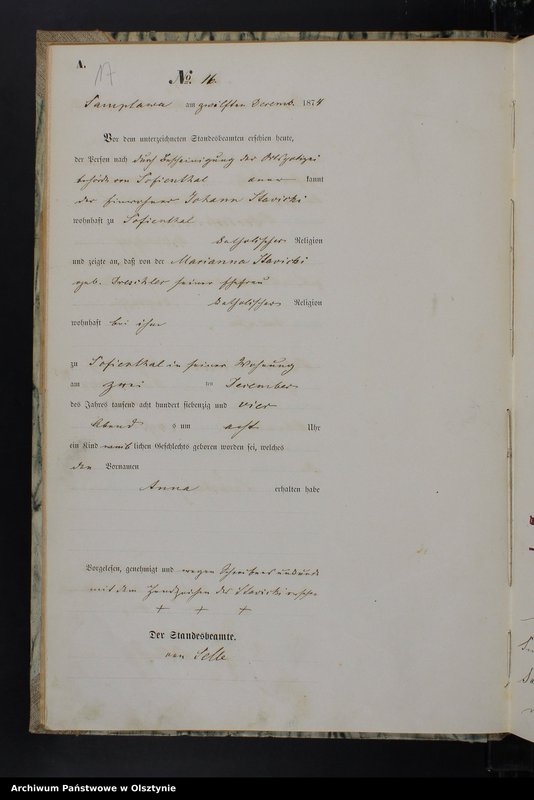 A.
17
No. 16.
Samplawa am zwölften Decemb. 1874
Vor dem unterzeichneten Standesbeamten erschien heute,
der Person nach durch Bescheinigung der Ortspolizei
behörde von Sofienthal aner kannt
der Einwohner Johann Stavicki
wohnhaft zu Sofienthal
katholischer Religion
und zeigte an, daß von der Marianna Stavicki
geb. seiner Ehefrau
katholischer Religion
wohnhaft bei ihm
zu Sofienthal in seiner Wohnung
am zwei ten December
des Jahres tausend acht hundert siebenzig und vier
Abend s um acht Uhr
ein Kind weib lichen Geschlechts geboren worden sei, welches
den Vornamen
Anna erhalten habe
Vorgelesen, genehmigt und wegen Schreibens
mit dem Handzeichen des Stavicki versehen
+ + +
Der Standesbeamte.
von Selle
Archiwum Państwowe w Olsztynie